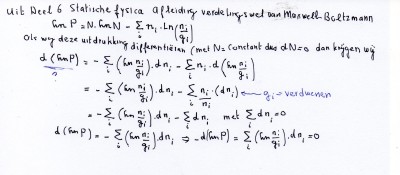 Uit Deel 6 Statische fysica afleiding verdelingswet van Maxwell-Boltzmann
ln P = N.ln N - Σ_i n_i . Ln(n_i/g_i)
Als wij deze uitdrukking differentiëren (met N = constant dus dN=0 dan krijgen wij
d(ln P) = - Σ_i (ln n_i/g_i).dn_i - Σ_i n_i.d(ln n_i/g_i)
?
= - Σ_i (ln n_i/g_i).dn_i - Σ_i n_i/n_i.(dn_i) ← g_i = verdwenen
= - Σ_i (ln n_i/g_i).dn_i - Σ_i dn_i met Σ_i dn_i = 0
d(ln P) = - Σ_i (ln n_i/g_i).dn_i ⇒ -d(ln P) = Σ_i (ln n_i/g_i).dn_i = 0